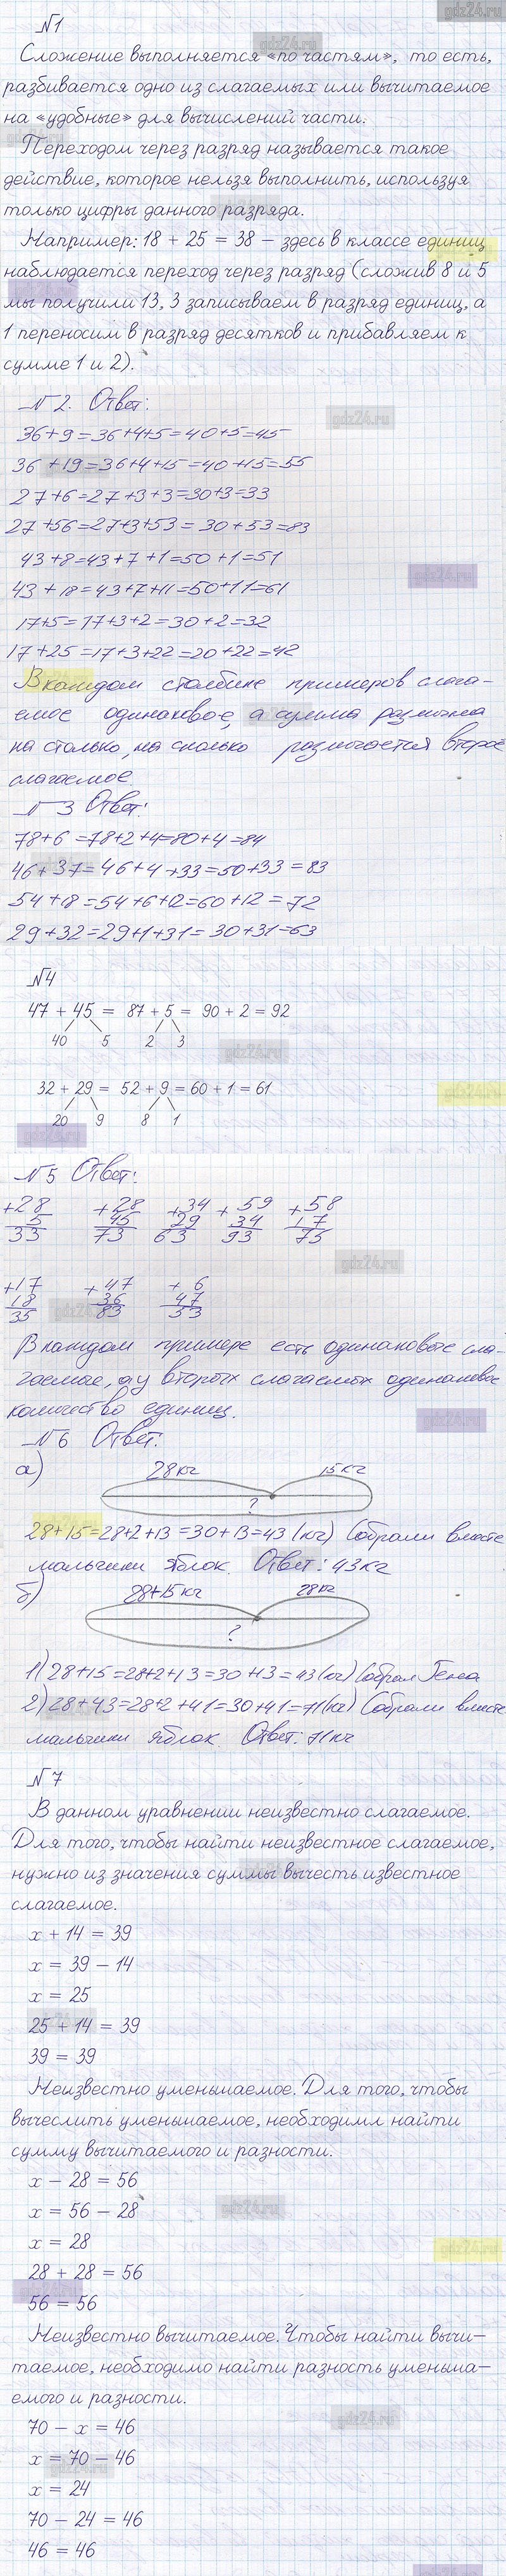 gdz24.ru
№1
Сложение выполняется «по частям», то есть,
разбивается одно из слагаемых или вычитаемое
на «удобные» для вычислений части.
Переходом через разряд называется такое
действие, которое нельзя выполнить, используя
только цифры данного разряда.
Например: 18 + 25 = 38 – здесь в классе единиц
наблюдается переход через разряд (сложив 8 и 5
мы получили 13, 3 записываем в разряд единиц, а
1 переносим в разряд десятков и прибавляем к
сумме 1 и 2).
№2. Ответ:
36+9=36+4+5=40+5=45
36+19=36+4+15=40+15=55
27+6=27+3+3=30+3=33
27+56=27+3+53=30+53=83
43+8=43+7+1=50+1=51
43+18=43+7+11=50+11=61
17+5=17+3+2=30+2=32
17+25=17+3+22=20+22=42
В каждом столбике примеров слага-
емое одинаковое, а сумма
на столько, на сколько различается второе
слагаемое.
№3 Ответ:
78+6=78+2+4=80+4=84
46+37=46+4+33=50+33=83
54+18=54+6+12=60+12=72
29+32=29+1+31=30+31=63
№4
47 + 45 = 87 + 5 = 90 + 2 = 92
40 5 2 3
32 + 29 = 52 + 9 = 60 + 1 = 61
20 9 8 1
№5 Ответ:
+28 +28 +34 +59 +58
5 45 29 34 17
33 73 63 93 75
+17 +47 +6
18 36 47
35 83 53
В каждом примере есть одинаковые сла-
гаемые, а у вторых слагаемых одинаковое
количество единиц.
№6 Ответ:
а)
28кг 15кг
?
28+15=28+2+13=30+13=43 (кг) Собрали вместе
мальчики яблок. Ответ: 43кг
б)
28+15кг 28кг
?
1) 28+15=28+2+13=30+13=43(кг) Собрал Гена
2) 28+43=28+2+41=30+41=71(кг) Собрали вместе
мальчики яблок. Ответ: 71кг
№7
В данном уравнении неизвестно слагаемое.
Для того, чтобы найти неизвестное слагаемое,
нужно из значения суммы вычесть известное
слагаемое.
х + 14 = 39
х = 39 – 14
х = 25
25 + 14 = 39
39 = 39
Неизвестно уменьшаемое. Для того, чтобы
вычеслить уменьшаемое, необходимл найти
сумму вычитаемого и разности.
х – 28 = 56
х = 56 – 28
х = 28
28 + 28 = 56
56 = 56
Неизвестно вычитаемое. Чтобы найти вычи-
таемое, необходимо найти разность уменьша-
емого и разности.
70 – х = 46
х = 70 – 46
х = 24
70 – 24 = 46
46 = 46